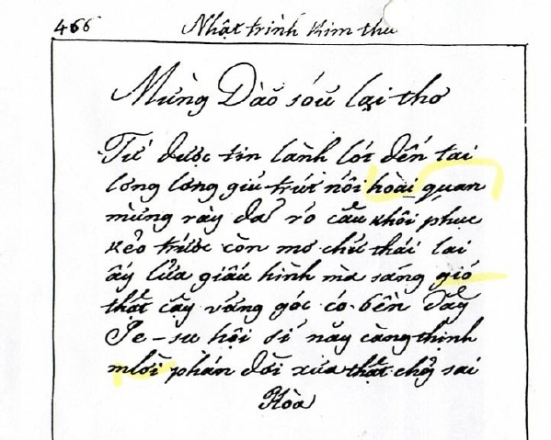 466 Nhật trình Kim thu
Mừng Đào sóu lại thơ
Từ được tin lành lót đến tai
lòng lóng giũ trút nỗi hoài quan
mừng rày đã rõ câu khôi phục
kẻo trước còn mơ chữ thái lai
ấy lửa giấu hình mà sáng gió
thật cậy vững gốc có bền dây
Je-su hội sĩ nầy càng thịnh
mlời phán dõi xưa thật chẳng sai
Hòa